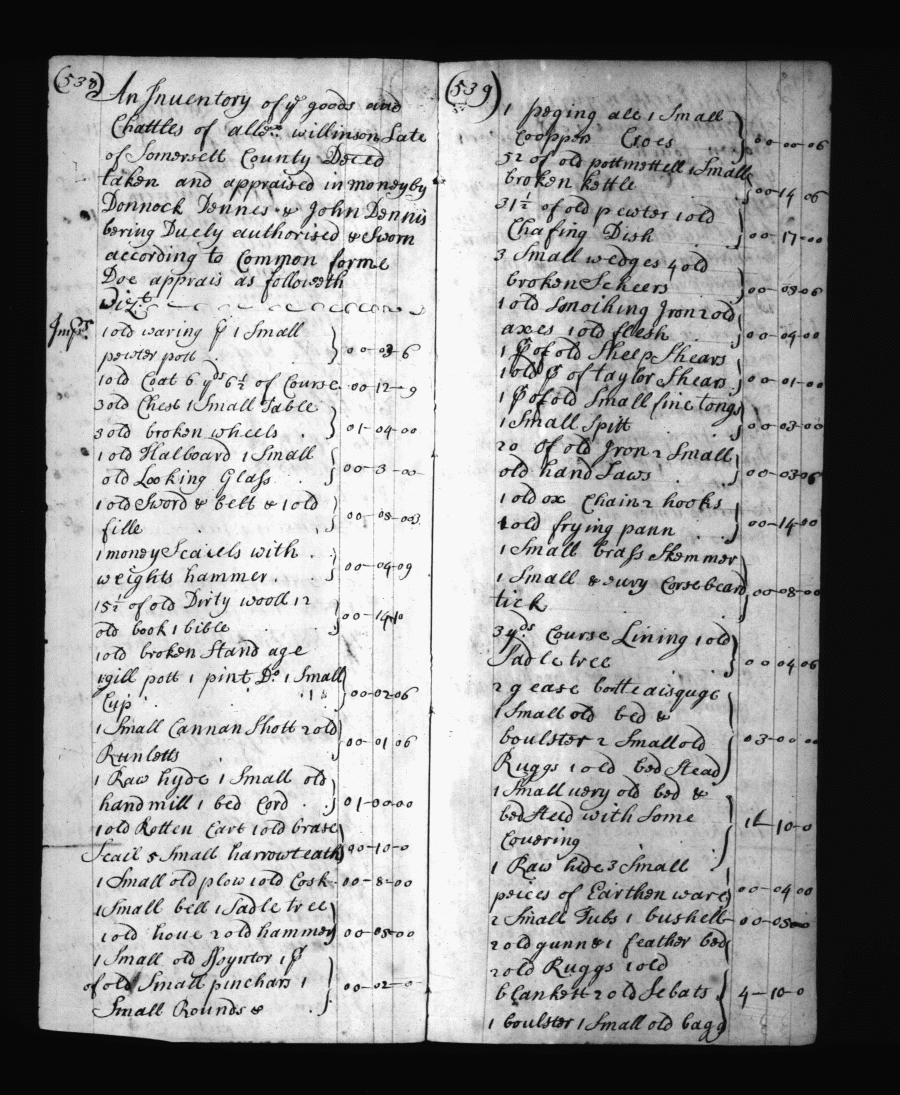 (538)
An Inventory of ye goods and
Chattles of allen willinson Late
of Somersett County Deced
taken and appraised in money by
Donnock Dennes & John Dennis
bering Duely authorised & Sworn
according to Common forme
Doe apprais as followeth
vizt
Imprs 1 old waring 1 Small
pewter pott 00-03-6
1 old Coat 6 yds 6½ of Course 00-12-9
3 old Chest 1 Small Table
3 old broken wheels 01-04-00
1 old Halboard 1 Small
old Looking Glass 00-3-00
1 old Sword & belt & 1 old
fille 00-08-003
1 money Scaiels with
weights hammer 00-04-09
15½ of old Dirty wooll 12
old book 1 bible 00-14-10
1 old broken Stand age
1 gill pott 1 pint Do 1 Small
Cup 00-02-06
1 Small Cannan Shott 2 old
Runletts 00-01-06
1 Raw hyde 1 Small old
hand mill 1 bed Cord 01-00-00
1 old Rotten Cart 1 old brase
Scail 5 Small harrow teath 00-10-0
1 Small old plow 1 old Cosk 00-8-00
1 Small bell 1 Sadle tree
1 old houe 2 old hammer 00-05-00
1 Small old 1 P
of old Small pinchars 1
Small Rounds & 00-02-0
(539)
1 peging ale 1 Small
Cooppers Croes 00-00-06
52 of old pottmettell 1 Small
broken kettle 00-14-06
31½ of old pewter 1 old
Chafing Dish 00-17-00
3 Small wedges 4 old
broken Scheers 00-03-06
1 old Smothing Iron 2 old
axes 1 old flesh 00-04-00
1 P of old Sheep Shears
1 old P of taylor Shears 00-01-00
1 P of old Small fine tongs
1 Small Spitt 00-03-00
20 of old Iron 2 Small
old hand Saws 00-03-06
1 old ox Chain 2 hooks
1 old frying pann 00-14-00
1 Small brass Skemmer
1 Small & eury Corse beard
tick 00-08-00
3 yds Course Lining 1 old
Sadle tree 00 04 06
2 g ease botte
1 Small old bed &
boulster 2 Small old
Ruggs 1 old bed Stead 03-00-00
1 Small uery old bed &
bed Steed with Some
Couering 10-0
1 Raw hide 3 Small
peices of Earthen ware 00-04-00
2 Small Tubs 1 bushell 00-05-00
2 old gunns 1 feather bed
2 old Ruggs 1 old
blankett 2 old Sebats 4-10-0
1 boulster 1 Small old bagg